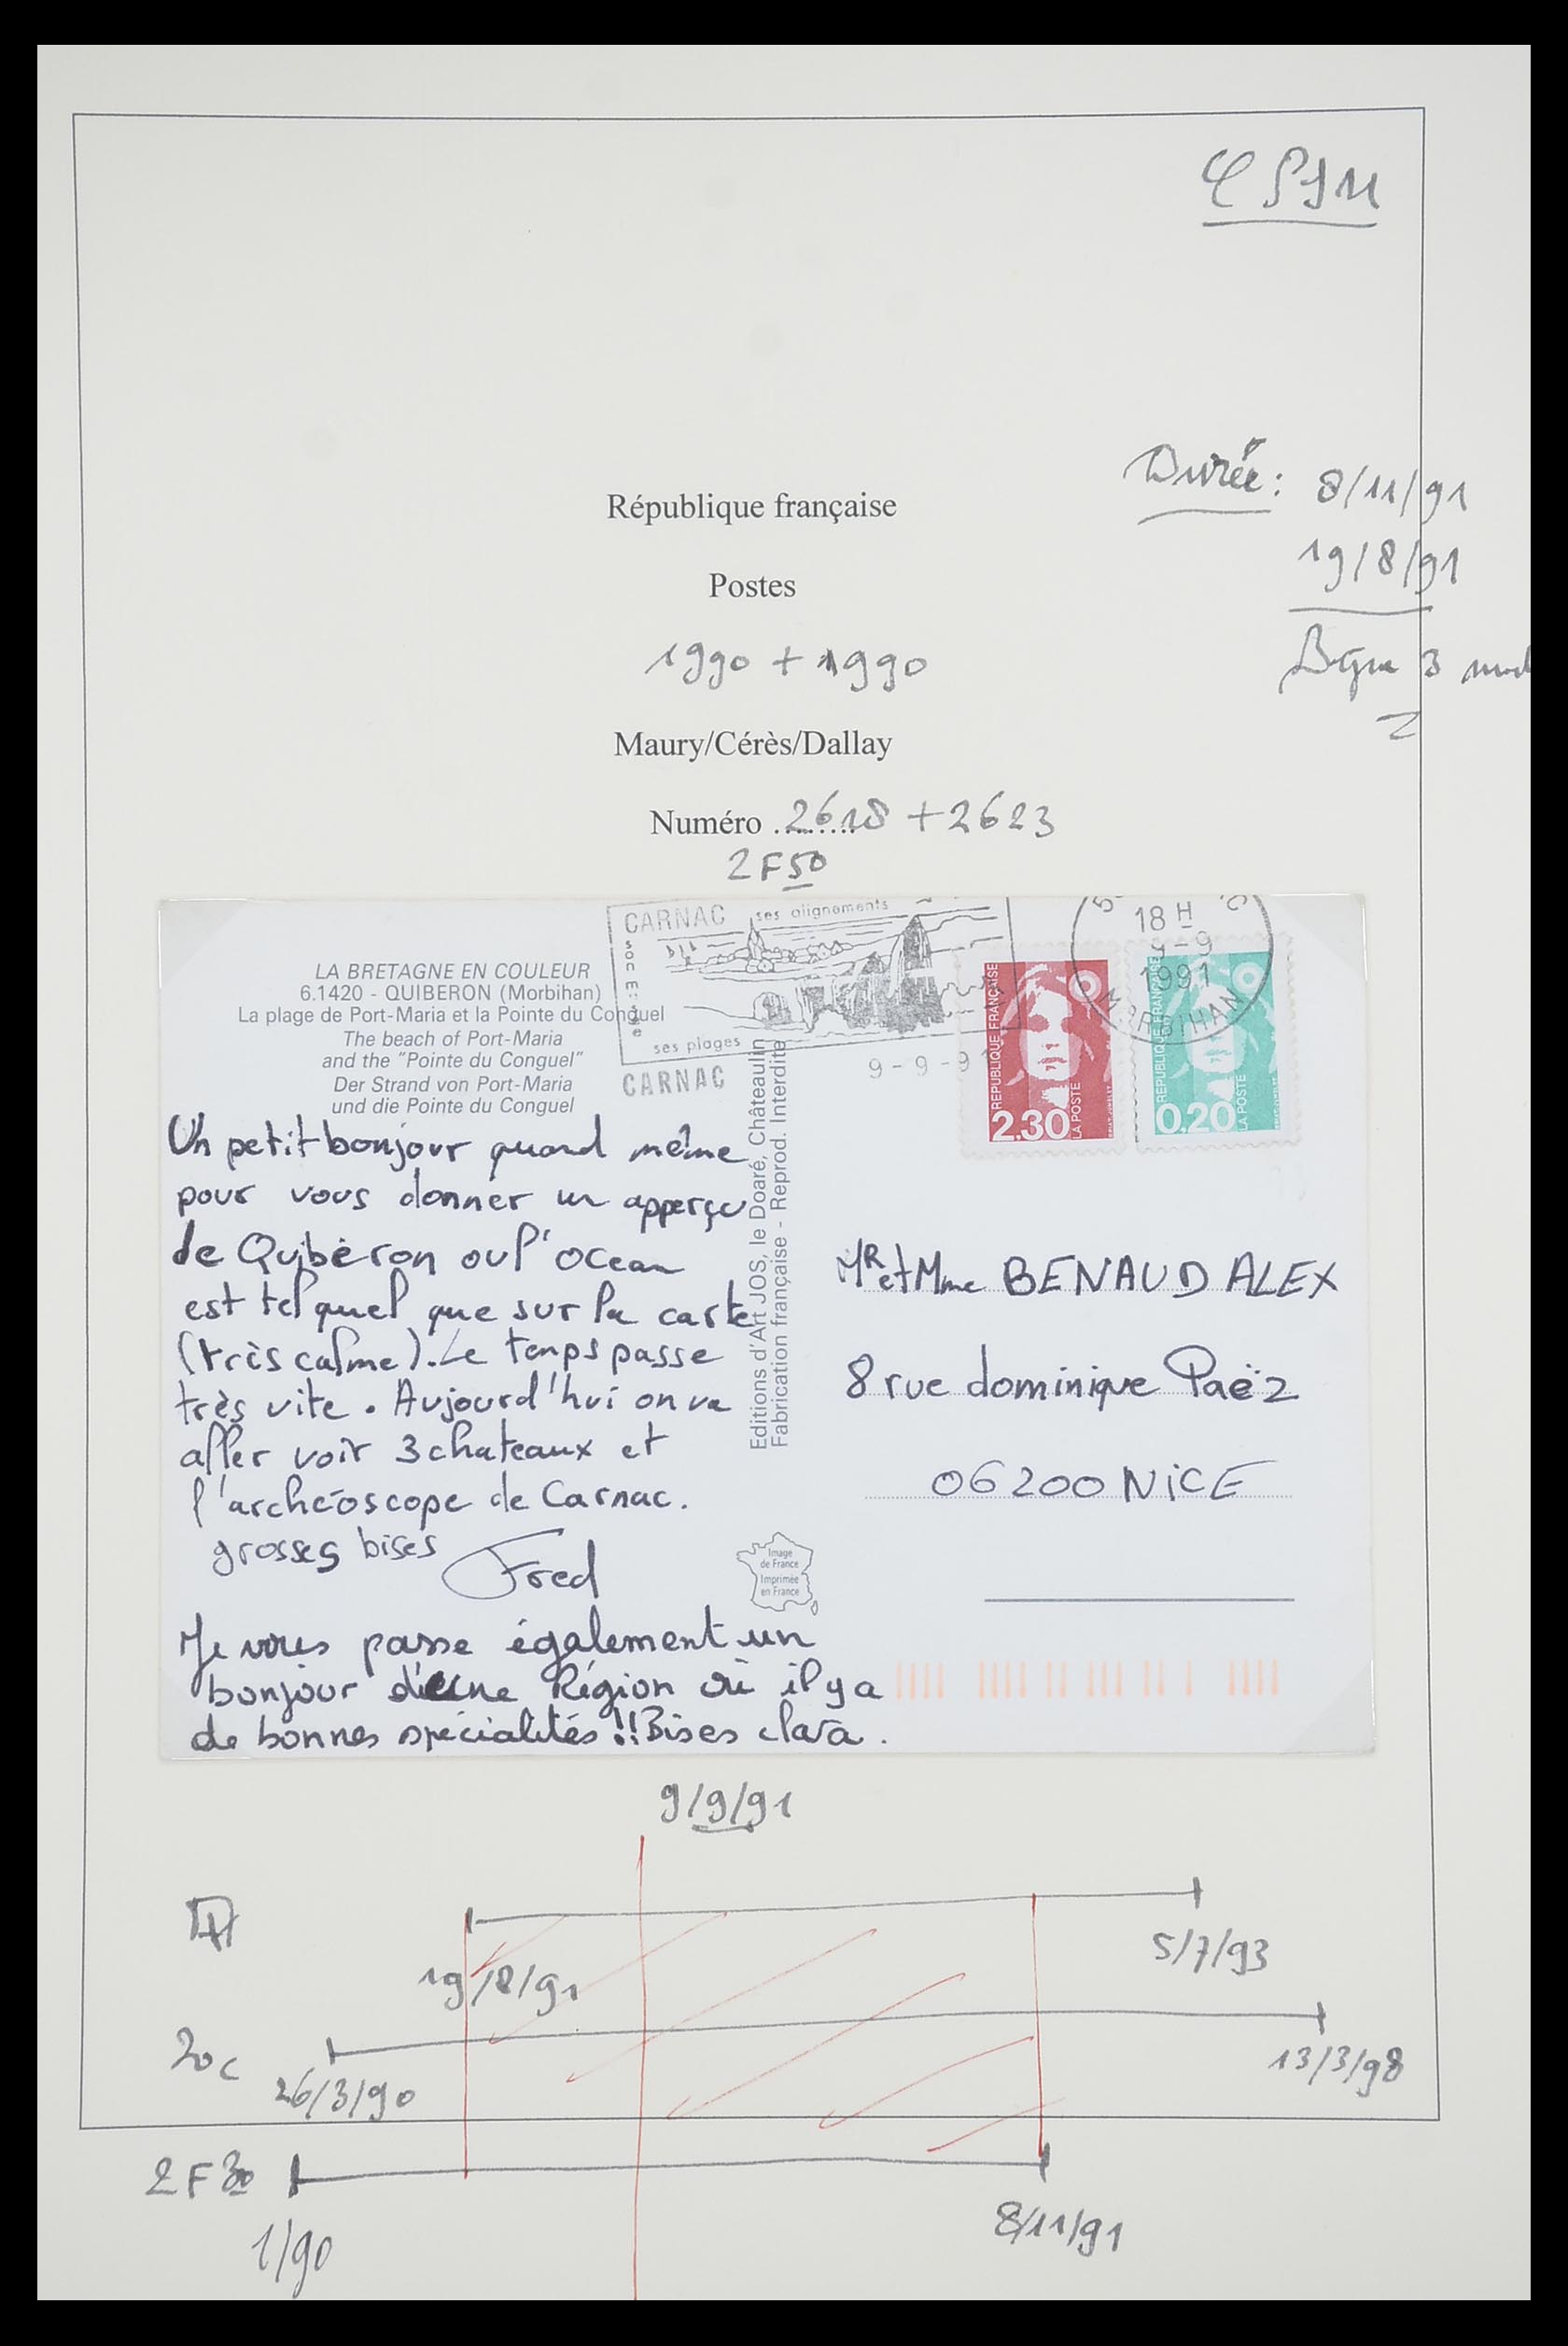 CPSM
Durée: 8/11/91
19/8/91
3
République française
Postes
1990 + 1990
Maury/Cérès/Dallay
Numéro ......... 2618 + 2623
2F50
CARNAC ses alignements
ses plages
CARNAC
9-9-91
18 H
9-9
1991
MORBIHAN
REPUBLIQUE FRANÇAISE
2.30
LA POSTE
REPUBLIQUE FRANÇAISE
0.20
LA POSTE
LA BRETAGNE EN COULEUR
6.1420 - QUIBERON (Morbihan)
La plage de Port-Maria et la Pointe du Conguel
The beach of Port-Maria
and the "Pointe du Conguel"
Der Strand von Port-Maria
und die Pointe du Conguel
Un petit bonjour quand même
pour vous donner un apperçu
de Quibéron ou l'ocean
est tel quel que sur la carte
(très calme). Le temps passe
très vite. Aujourd'hui on va
aller voir 3 chateaux et
l'archéoscope de Carnac.
grosses bises
Fred
Je vous passe également un
bonjour d'une Région où il y a
de bonnes spécialités!! Bises clara.
Editions d'Art JOS, le Doaré, Châteaulin
Fabrication française - Reprod. Interdite
Mr et Mme BENAUD ALEX
8 rue dominique Paëz
06200 NiCE
Image
de France
Imprimée
en France
9/9/91
19/8/91
5/7/93
20c
26/3/90
13/3/98
2F30
1/90
8/11/91